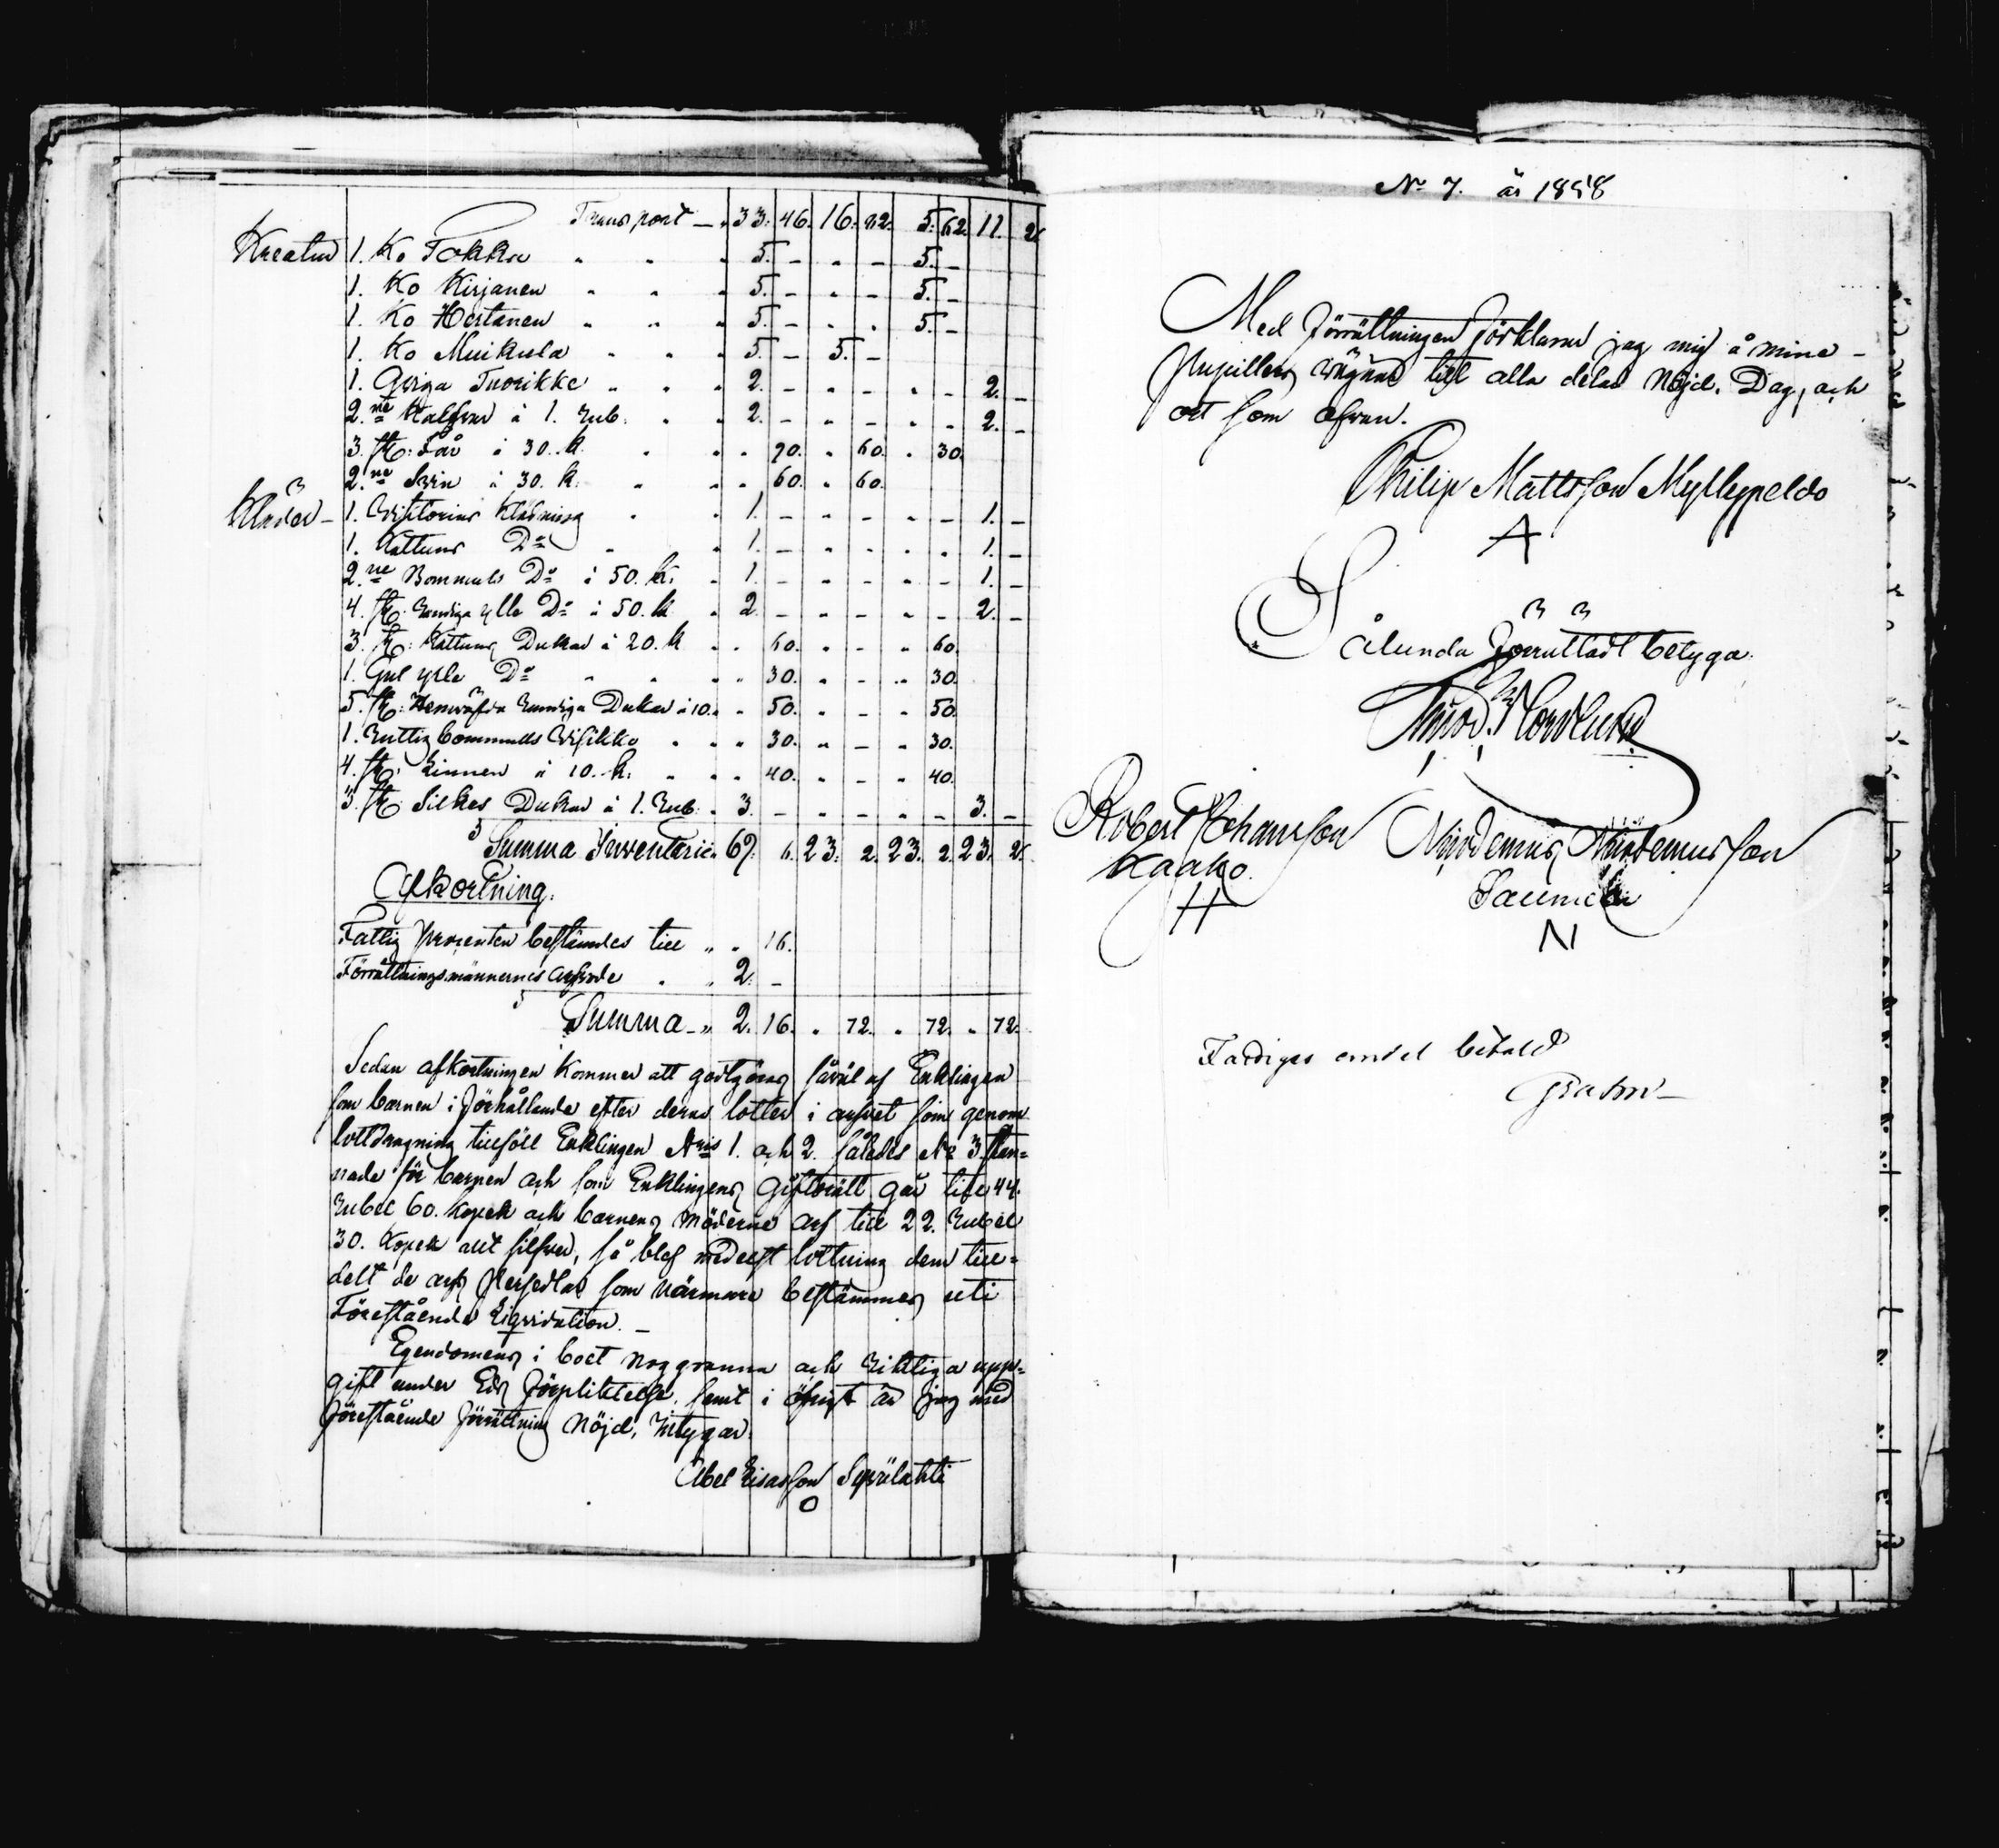 Transport — 33. 46. 16. 92. 5. 62. 11. 2.
Kreatur 1. Ko Pokka " " " 5. - " - 5. -
1. Ko Kirjanen " " " 5. - " - 5. -
1. Ko Hertanen " " " 5. - " " 5. -
1. Ko Muikula " " " 5. - 5. -
1. Qviga Tuorikke " " " 2. - " - " - 2. -
2.ne Kalfvar à 1. Rub. " " 2. - " - " - 2. -
3. st: Får à 30. k. " " " 90. " 60. " 30.
2.ne Svin à 30. k. " " " 60. " 60.
Kläder — 1. Klädning " " 1. - " - " - 1. -
1. Kattuns Do " " 1. - " " " " 1. -
2.ne Bommuls Do à 50. k. " 1. - " - " - 1. -
4. st: Randiga ylle Do à 50. k. " 2. - " - " - 2. -
3. st: Kattuns Dukar à 20. k " " 60. " - " 60.
1. Gul ylle Do " " " " 30. " - " 30.
5. st: Hemväfda Randiga Dukar à 10. " " 50. " - " 50.
1. Ruttig bommulls " " " 30. " - " 30.
4. st: Linnen à 10. k. " " " 40. " - " 40.
3. st. Silkes Dukar à 1. Rub. " 3. - " - " - 3. -
Summa Inventarii 69. 6. 23. 2. 23. 2. 23. 2.
Afkortning.
Fattig procenten bestämdes till " " 16.
Förrättningsmännernes arfvode " " 2. -
Summa — " 2. 16. " 72. " 72. " 72.
Sedan afkortningen kommer att godtgöras såväl af Enklingen
som barnen i förhållande efter deras lotter i arfvet som genom
lottdragning tillföll Enklingen Nris 1. och 2. således No 3. stan=
nade för barnen och som Enklingens Giftorätt går till 44.
Rubel 60. kopek och barnens Möderne arf till 22. Rubel
30. kopek allt silfver, så blef medelst lottning dem till=
delt de arfs Persedlar som närmare bestämmes uti
Förestående Liqvidation. —
Egendomens i boet noggranna och Riktiga upp=
gift under Eds förpliktelse, samt i öfrigt är jag med
förestående förrättning Nöjd, betygar.
Abel Esaiasson Sepvilahti
O
No 7. år 1858
Med förrättningen förklarar jag mig å mine —
Pupillers vägnar till alla delar Nöjd. Dag, och
ort som ofvan.
Philip Mattsson Myllypeldo
A
Sålunda förrättadt betyga.
Nordlund
Robert Johansson Nicodemus Nicodemusson
Kaako. Saunela
H N
Fattigas andel betald